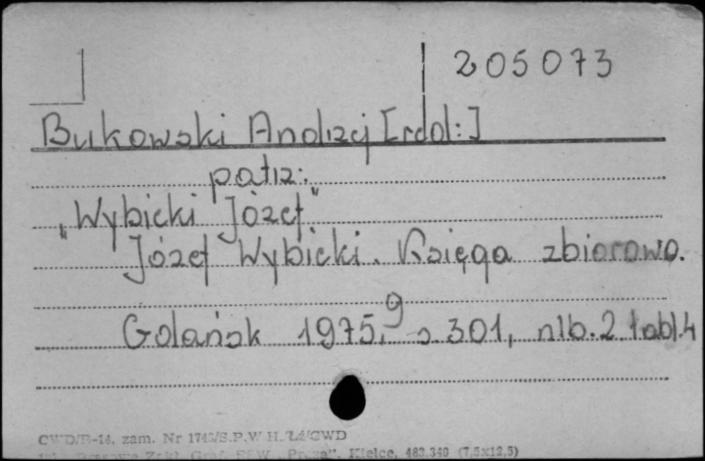 205073
Bukowski Andrzej [red.:]
patrz:
„Wybicki Józef"
Józef Wybicki. Księga zbiorowa.
Gdańsk 1975, s. 301, nlb. 2 tabl. 4
CWD/B-14. zam. Nr
Kielce, 483.340 (7,5x12,5)